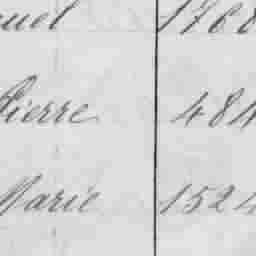 uel 1768
Pierre 484
Marie 1524